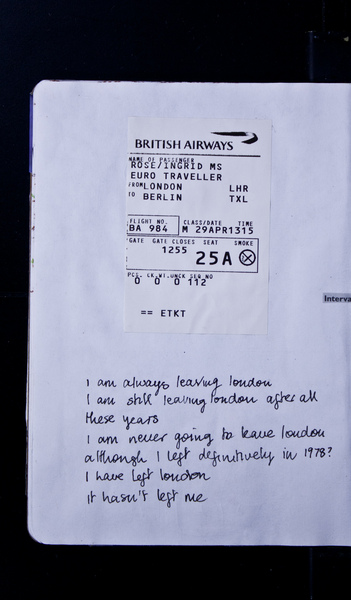 BRITISH AIRWAYS
NAME OF PASSENGER
ROSE/INGRID MS
EURO TRAVELLER
FROM LONDON LHR
TO BERLIN TXL
FLIGHT NO. CLASS/DATE TIME
BA 984 M 29APR1315
GATE GATE CLOSES SEAT SMOKE
1255 25A
PCS. CK.WT. UNCK SEQ NO
0 0 0 112
== ETKT
Interva
I am always leaving london
I am still leaving london after all
these years
I am never going to leave london
although I left definitively in 1978?
I have left london
it hasn't left me